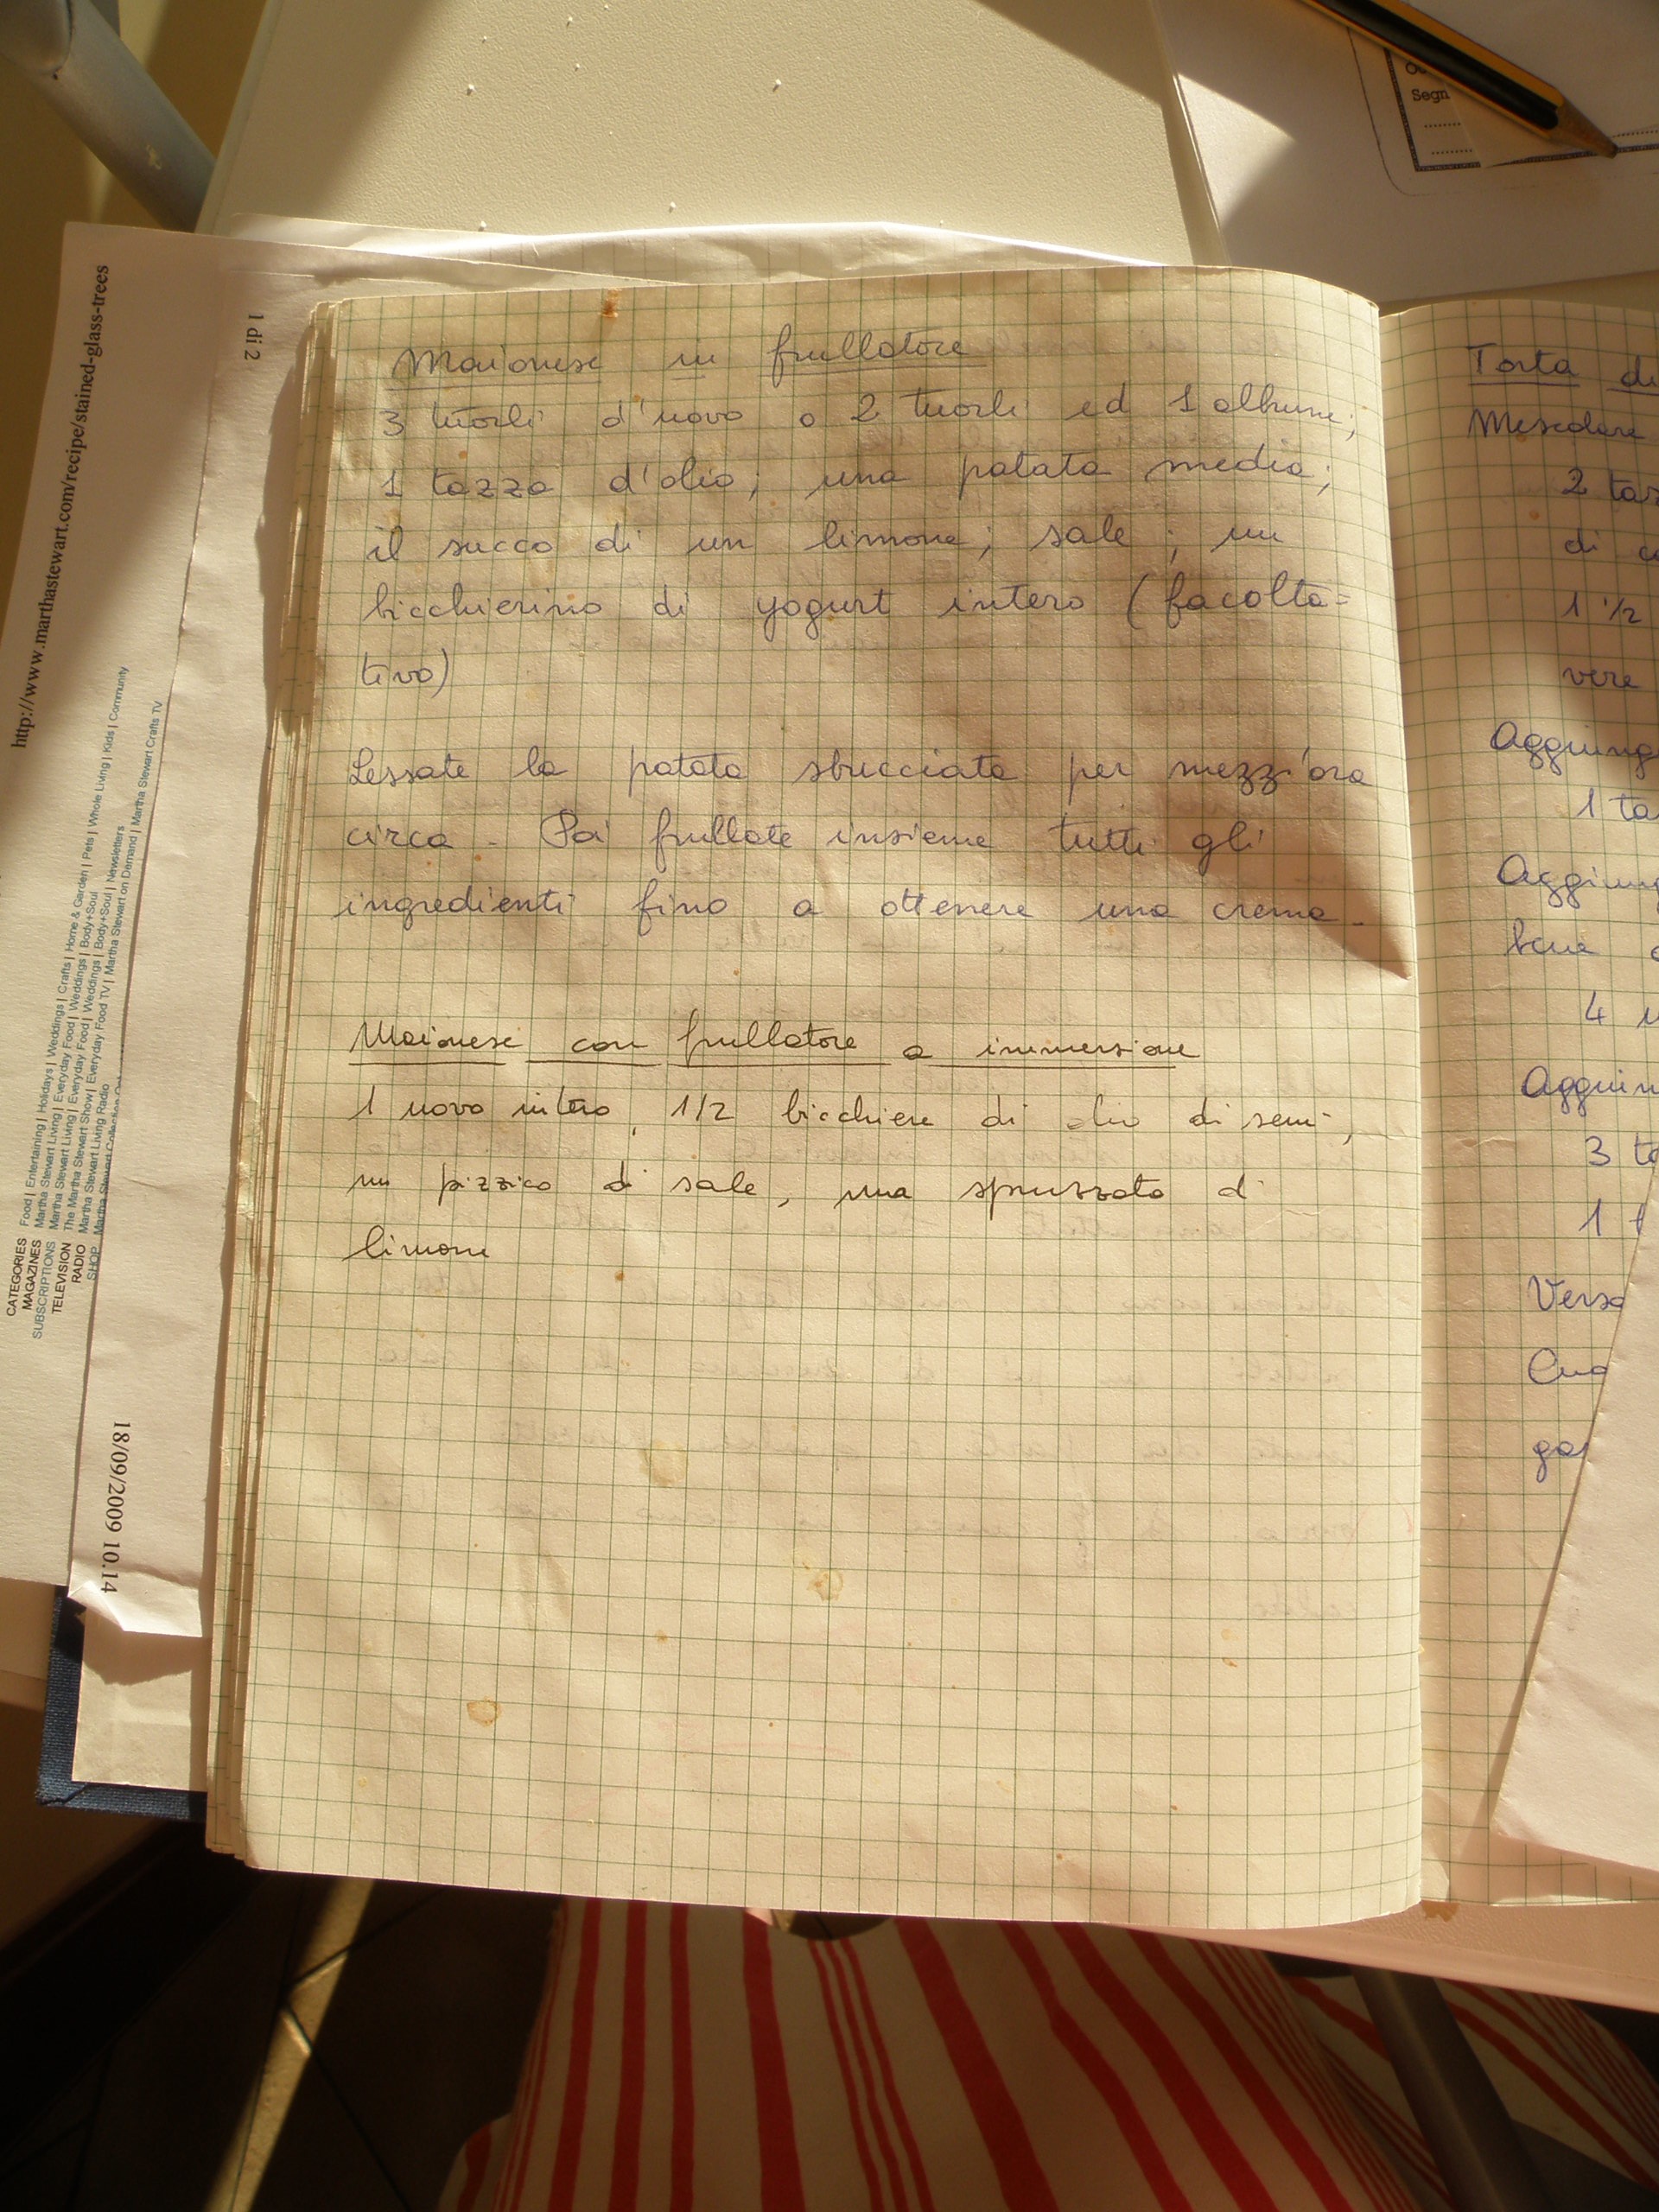 Maionese in frullatore
3 tuorli d'uovo o 2 tuorli ed 1 albume;
1 tazza d'olio; una patata media;
il succo di un limone; sale; un
bicchierino di yogurt intero (facolta=
tivo)
Lessate la patata sbucciata per mezz'ora
circa. Poi frullate insieme tutti gli
ingredienti fino a ottenere una crema.
Maionese con frullatore a immersione
1 uovo intero, 1/2 bicchiere di olio di semi,
un pizzico di sale, una spruzzata di
limone
Torta di
Mescolare
2 taz
di c
1 1/2
vere
Aggiung
1 ta
Aggiung
bene
4 u
Aggiun
3 ta
1 t
Versa
Cuo
Segn
http://www.marthastewart.com/recipe/stained-glass-trees
1 di 2
18/09/2009 10.14
CATEGORIES Food | Entertaining | Holidays | Weddings | Crafts | Home & Garden | Pets | Whole Living | Kids | Community
MAGAZINES Martha Stewart Living | Everyday Food | Weddings | Body+Soul
SUBSCRIPTIONS Martha Stewart Living | Everyday Food | Weddings | Body+Soul | Newsletters
TELEVISION The Martha Stewart Show | Everyday Food TV | Martha Stewart on Demand | Martha Stewart Crafts TV
RADIO Martha Stewart Living Radio
SHOP Martha Stewart Collection